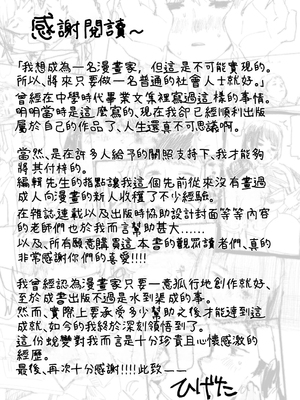 感謝閱讀~
「我想成為一名漫畫家，但這是不可能實現的。
所以、將來只要做一名普通的社會人士就好。」
曾經在中學時代畢業文集裡寫過這樣的事情。
明明當時是這麼寫的、現在我卻已經順利出版
屬於自己的作品了、人生還真不可思議啊。
當然、是在許多人給予的關照支持下、我才能夠
將其付梓的。
編輯先生的指點讓我這個先前從來沒有畫過
成人向漫畫的新人收穫了不少經驗。
在雜誌連載以及出版時協助設計封面等等內容
的老師們也於我而言幫助甚大……
以及、所有願意購買這本書的觀眾讀者們、真的
非常感謝你們的喜愛!!!!
我曾經認為漫畫家只要一意孤行地創作就好、
至於成書出版不過是水到渠成的事。
然而、實際上要承受多少幫助之後才能達到這
成就、如今的我終於深刻領悟到了。
這份蛻變對我而言是十分珍貴且心懷感激的
經歷。
最後、再次十分感謝!!!!此致——
ひげた